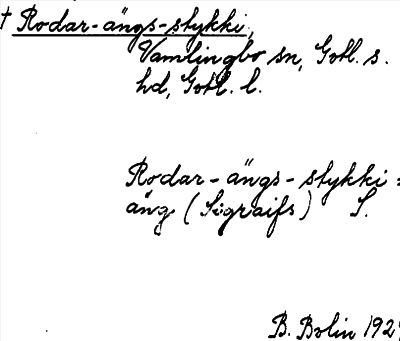 † Rodar-ängs-stykki,
Vamlingbo sn, Gotl. s.
hd, Gotl. l.
Rodar-ängs-stykki:
äng (Sigraifs) S.
B. Bolin